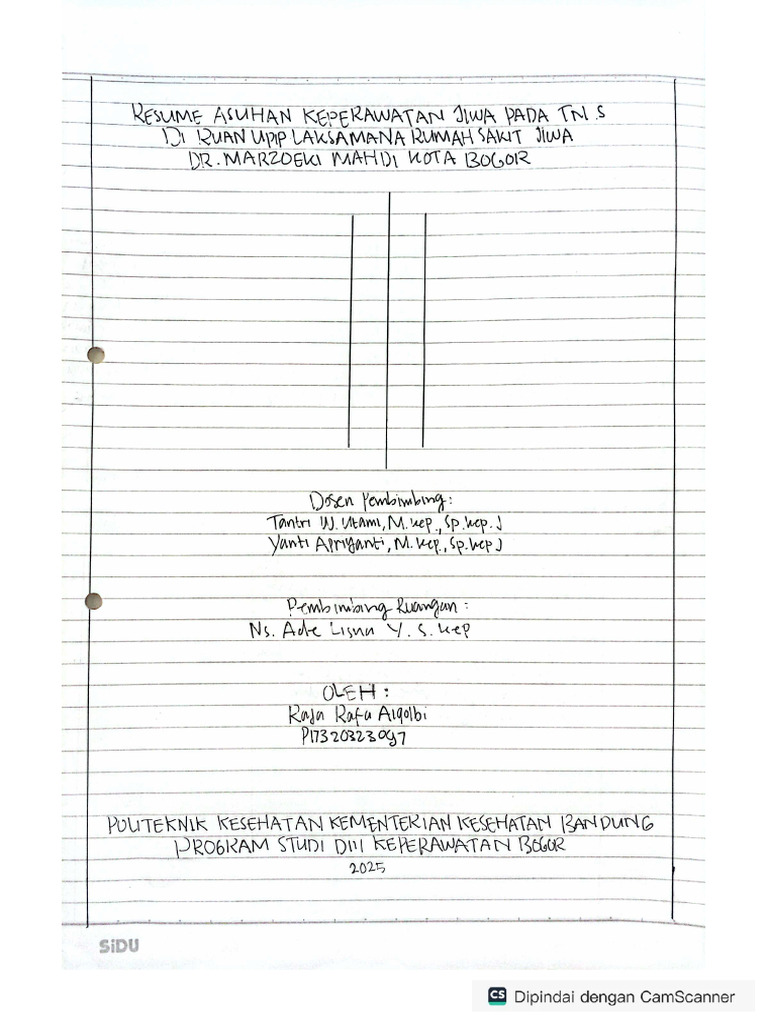 RESUME ASUHAN KEPERAWATAN JIWA PADA TN.S
DI RUAN UPIP LAKSAMANA RUMAH SAKIT JIWA
DR. MARZOEKI MAHDI KOTA BOGOR
Dosen Pembimbing:
Tantri W. Utami, M.kep., Sp.kep.J
Yanti Apriyanti, M.kep., Sp.kep J
Pembimbing Ruangan:
Ns. Ade Lisna Y. S.kep
OLEH:
Raja Rafa Alqolbi
POLITEKNIK KESEHATAN KEMENTERIAN KESEHATAN BANDUNG
PROGRAM STUDI DIII KEPERAWATAN BOGOR
2025
SiDU
CS Dipindai dengan CamScanner